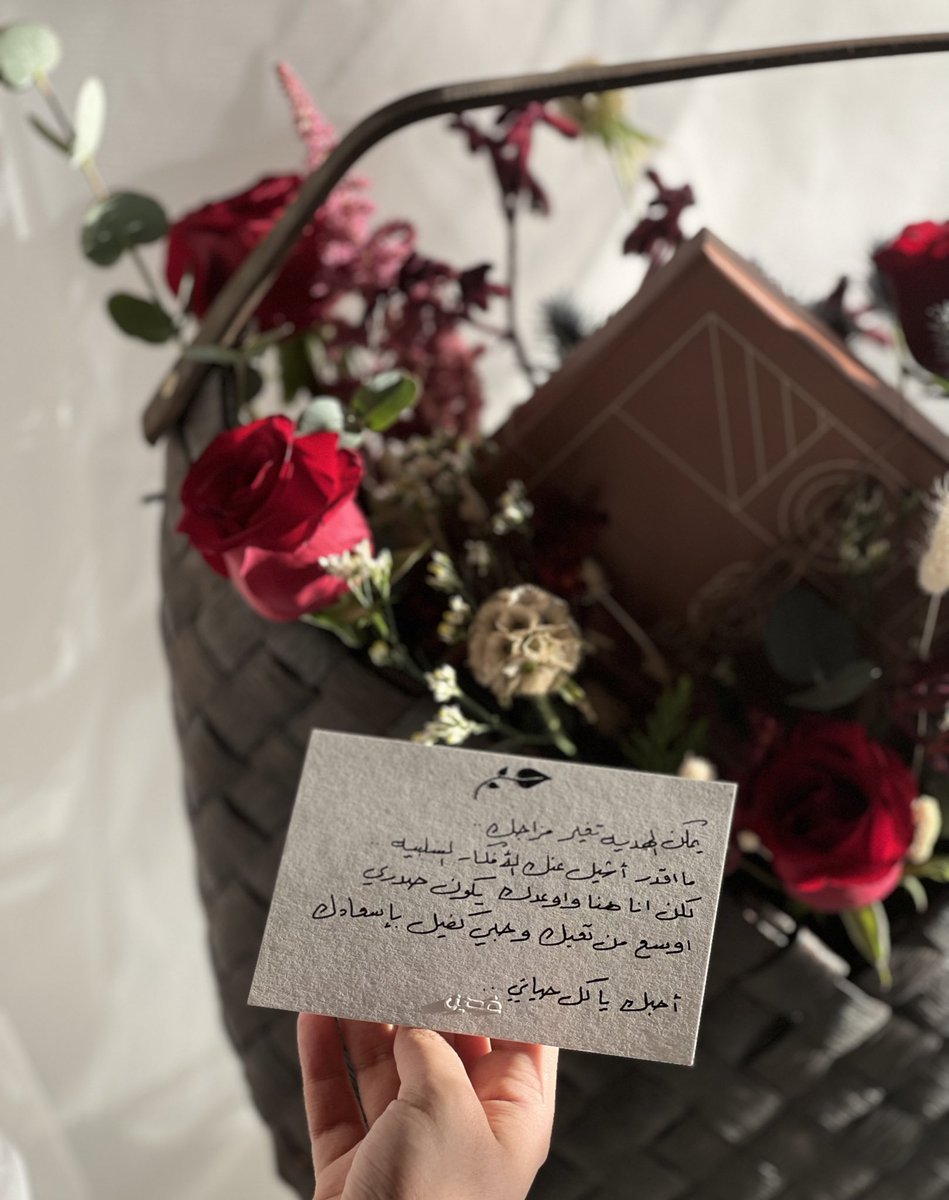 يمكن الهديه تغير مزاجك ..
ما اقدر أشيل عنك الأفكار السلبيه ..
لكن انا هنا واوعدك يكون صدري
اوسع من تعبك وحبي كفيل بإسعادك
أحبك يا كل حياتي ..